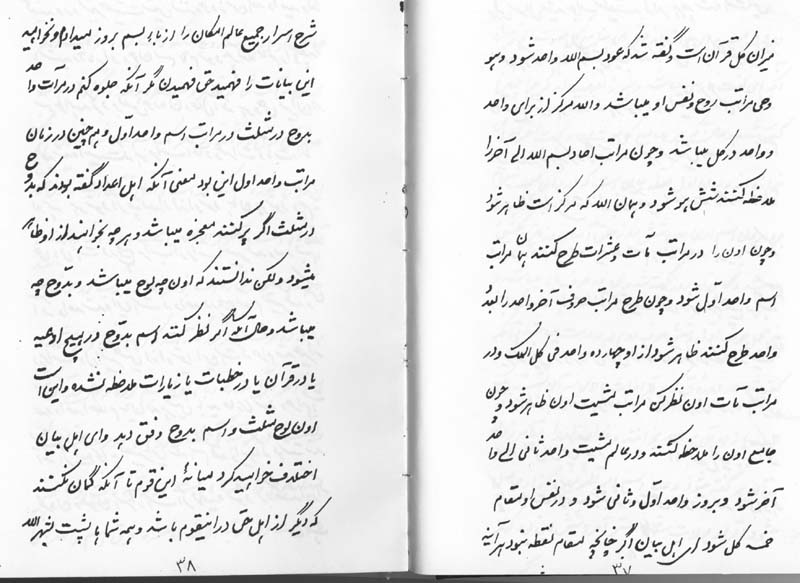 میزان کل قرآن است و گفته شد که عود بسم الله واحد شود و هو
وحی مراتب روح و نفس او میباشد و الله مرکز از برای واحد
و واحد در کل میباشد و چون مراتب احاد بسم الله الی آخر را
ملاحظه کنند شش هو شود و همان الله که مرکز است ظاهر شود
و چون اون را در مراتب مآت و عشرات طرح کنند همان مراتب
اسم واحد اول شود و چون طرح مراتب حروف آخر واحد را بعدد
واحد طرح کنند ظاهر شود از او چهارده واحد فی کل الملک و در
مراتب مآت اون نظر کن مراتب مشیت اون ظاهر شود و چون
جامع اون را ملاحظه کنند و در عالم مشیت واحد ثانی الی واحد
آخر شود و بروز واحد اول و ثانی شود و در نفس او بمقام
خمسه کل شود ای اهل بیان اگر چنانچه بمقام نقطه نبود هر آینه
۳۷
شرح اسرار جمیع عالم امکان را از باء بسم بروز میدادم و نخواهید
این بیانات را فهمید حق فهمیدن مگر آنکه جلوه کنم در مرآت واحد
بدوح در مثلث در مراتب اسم واحد اول و هم چنین در زمان
مراتب واحد اول این بود معنی آنکه اهل اعداد گفته بودند که بدوح
در مثلث اگر پر کنند معجزه میباشد و هر چه بخواهند از او ظاهر
میشود ولکن ندانستند که اون چه لوح میباشد و بدوح چه
میباشد و حال آنکه اگر نظر کنند اسم بدوح در هیچ ادعیه
یا در قرآن یا در خطبات یا زیارات ملاحظه نشده و این است
اون لوح مثلث و اسم بدوح وفق دهد وای اهل بیان
اختلاف خواهید کرد میانهٔ این قوم تا آنکه گمان نکنند
که دیگر از اهل حق در اینقوم باشد و همه شما ها پشت بشهر الله
۳۸